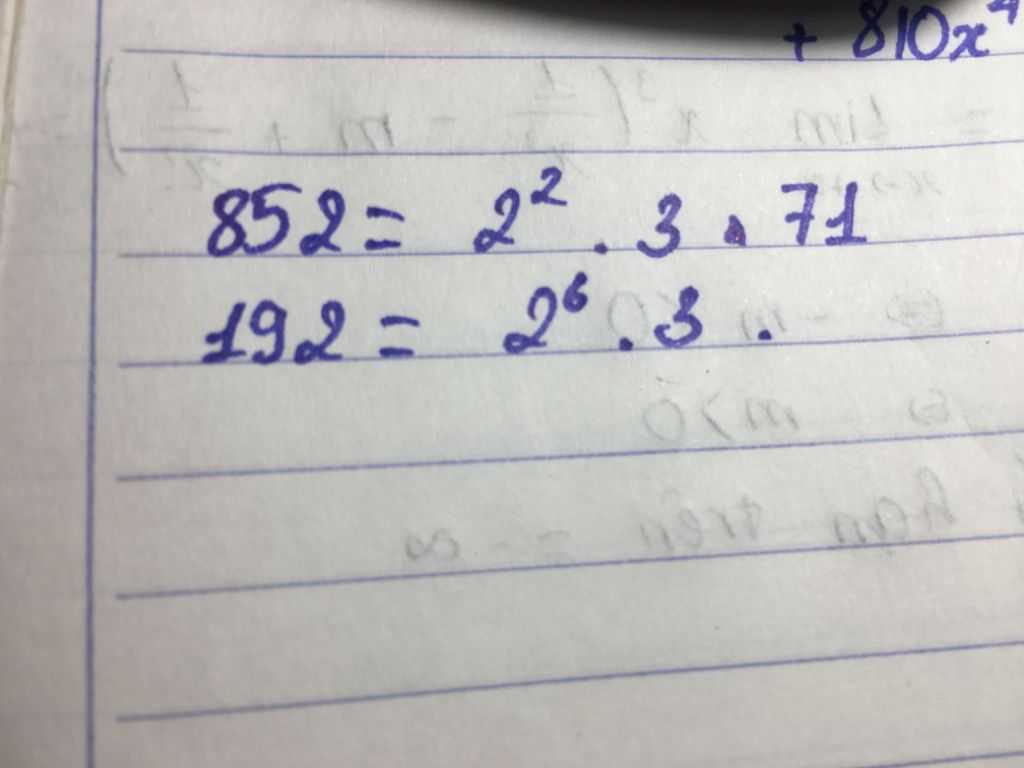 + 810x⁴
852 = 2² . 3 . 71
192 = 2⁶ . 3 .